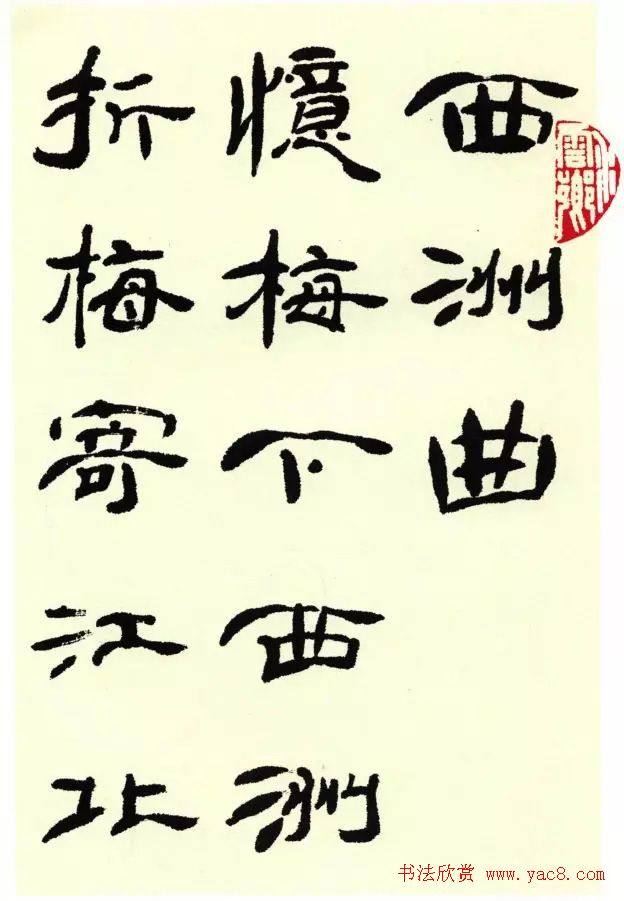 西洲曲
憶梅下西洲
折梅寄江北
书法欣赏 www.yac8.com